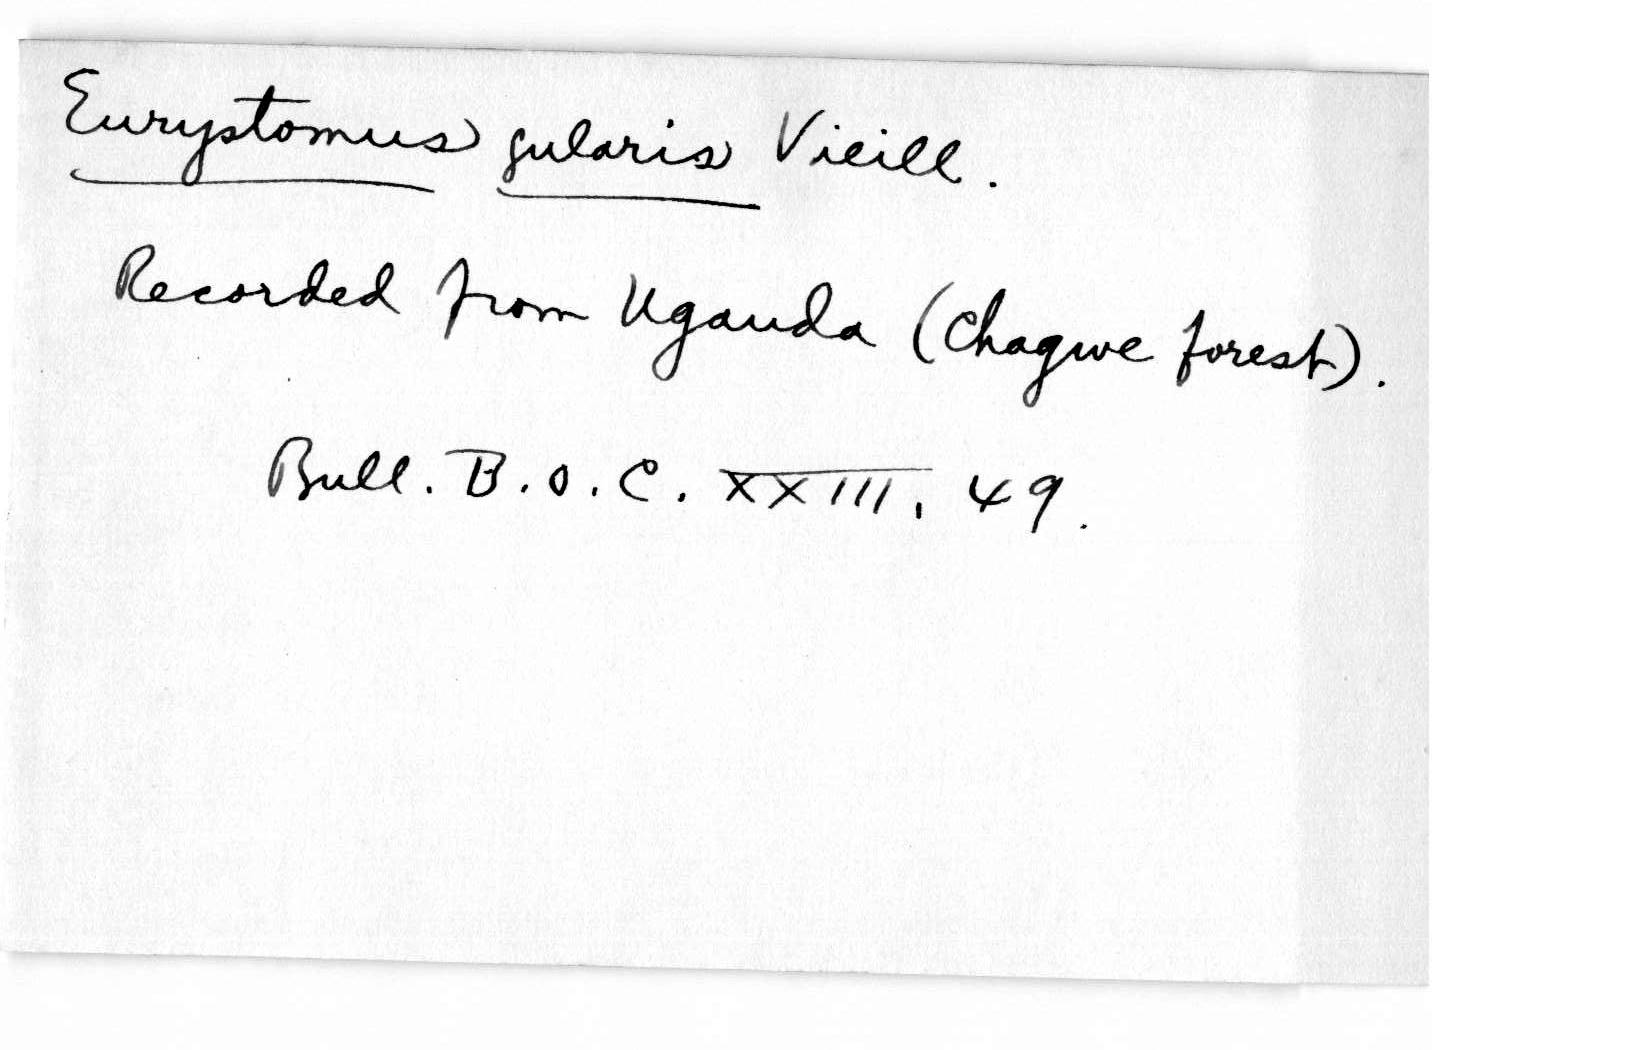 Eurystomus gularis Vieill.
Recorded from Uganda (Chagwe forest).
Bull. B.O.C. XXIII, 49.